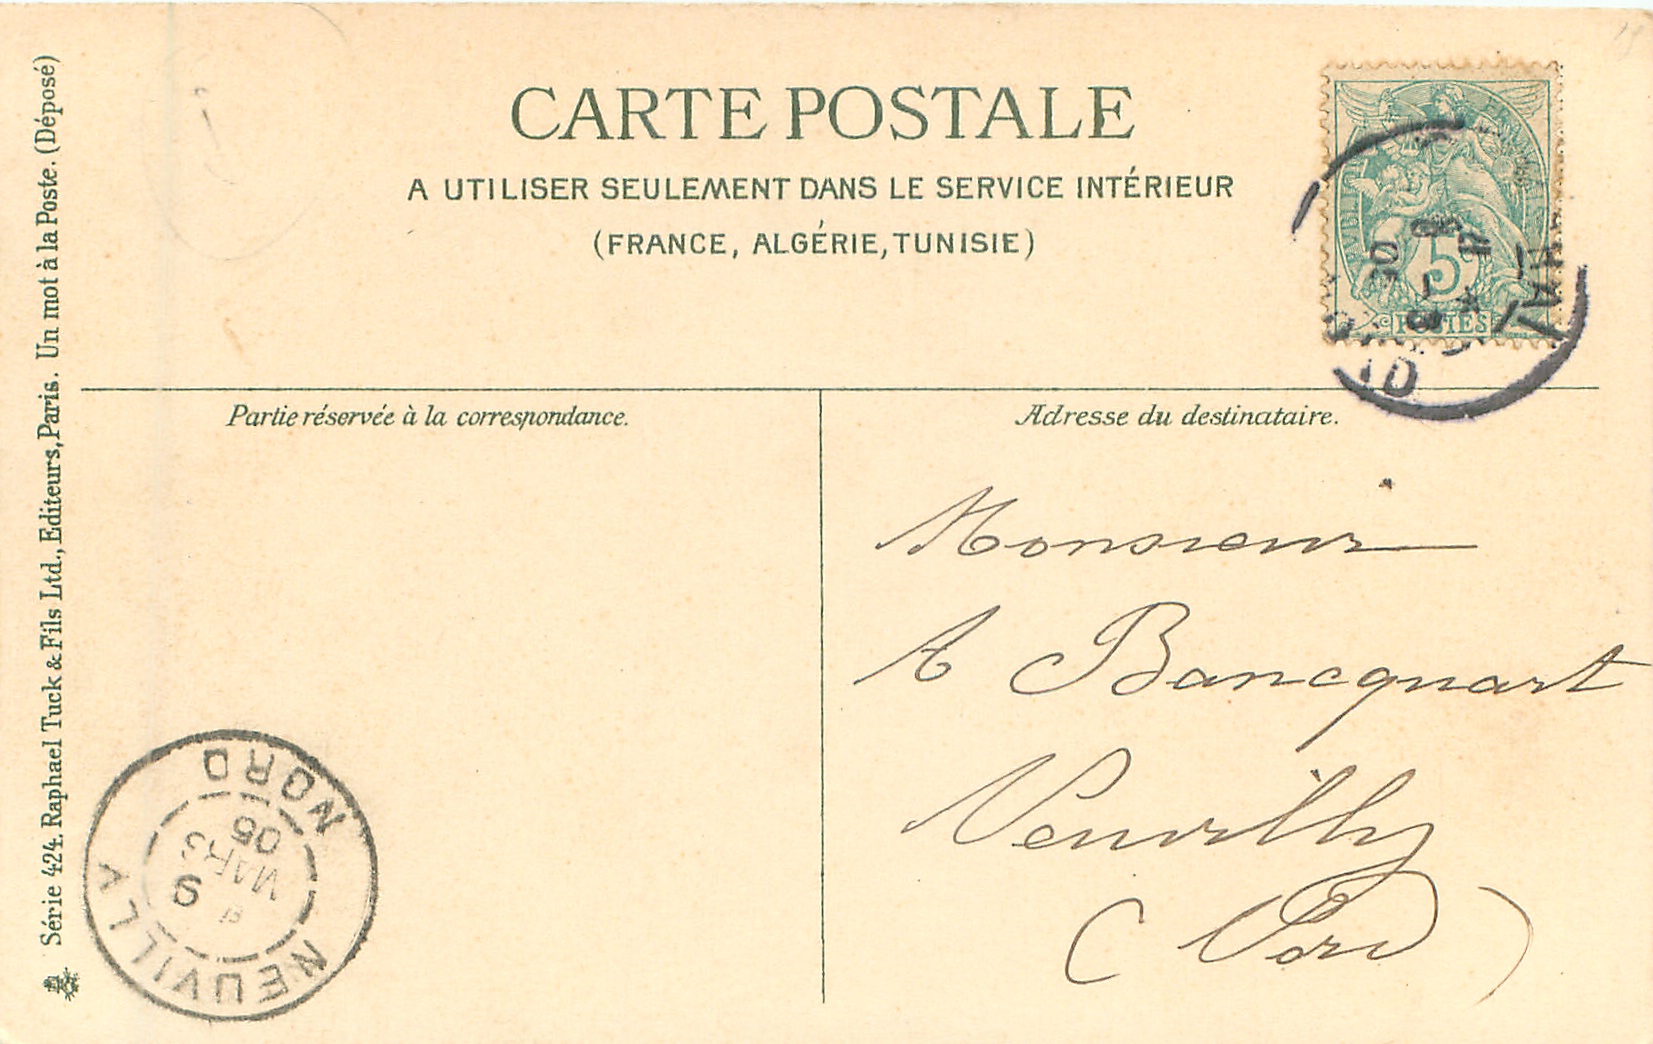 CARTE POSTALE
A UTILISER SEULEMENT DANS LE SERVICE INTÉRIEUR
(FRANCE, ALGÉRIE, TUNISIE)
Série 424. Raphael Tuck & Fils Ltd., Editeurs, Paris. Un mot à la Poste. (Déposé)
5
POSTES
Partie réservée à la correspondance.
Adresse du destinataire.
Monsieur
A Bancquart
Neuvilly
(Nord)
NEUVILLY
NORD
9
MARS
05